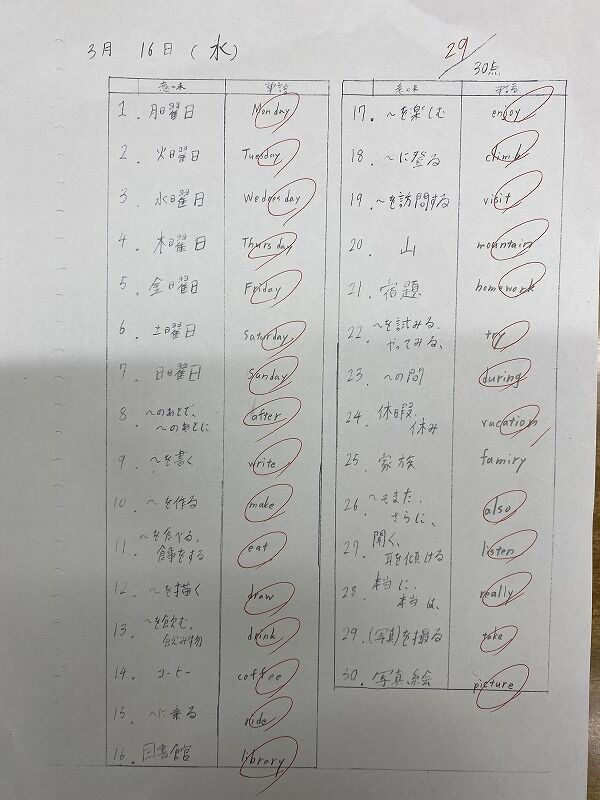 3月 16日 (水)
29/30点
意味 単語
1. 月曜日 Monday
2. 火曜日 Tuesday
3. 水曜日 Wednesday
4. 木曜日 Thursday
5. 金曜日 Friday
6. 土曜日 Saturday
7. 日曜日 Sunday
8. 〜のあとで、 after
〜のあとに
9. 〜を書く write
10. 〜を作る make
11. 〜を食べる、 eat
食事をする
12. 〜を描く draw
13. 〜を飲む、 drink
飲み物
14. コーヒー coffee
15. 〜に乗る ride
16. 図書館 library
意味 単語
17. 〜を楽しむ enjoy
18. 〜に登る climb
19. 〜を訪問する visit
20. 山 mountain
21. 宿題 homework
22. 〜を試みる、 try
やってみる、
23. 〜の間 during
24. 休暇、 vacation
休み
25. 家族 famiry
26. 〜もまた、 also
さらに、
27. 聞く、 listen
耳を傾ける
28. 本当に、 really
本当は、
29. (写真)を撮る take
30. 写真、絵 picture